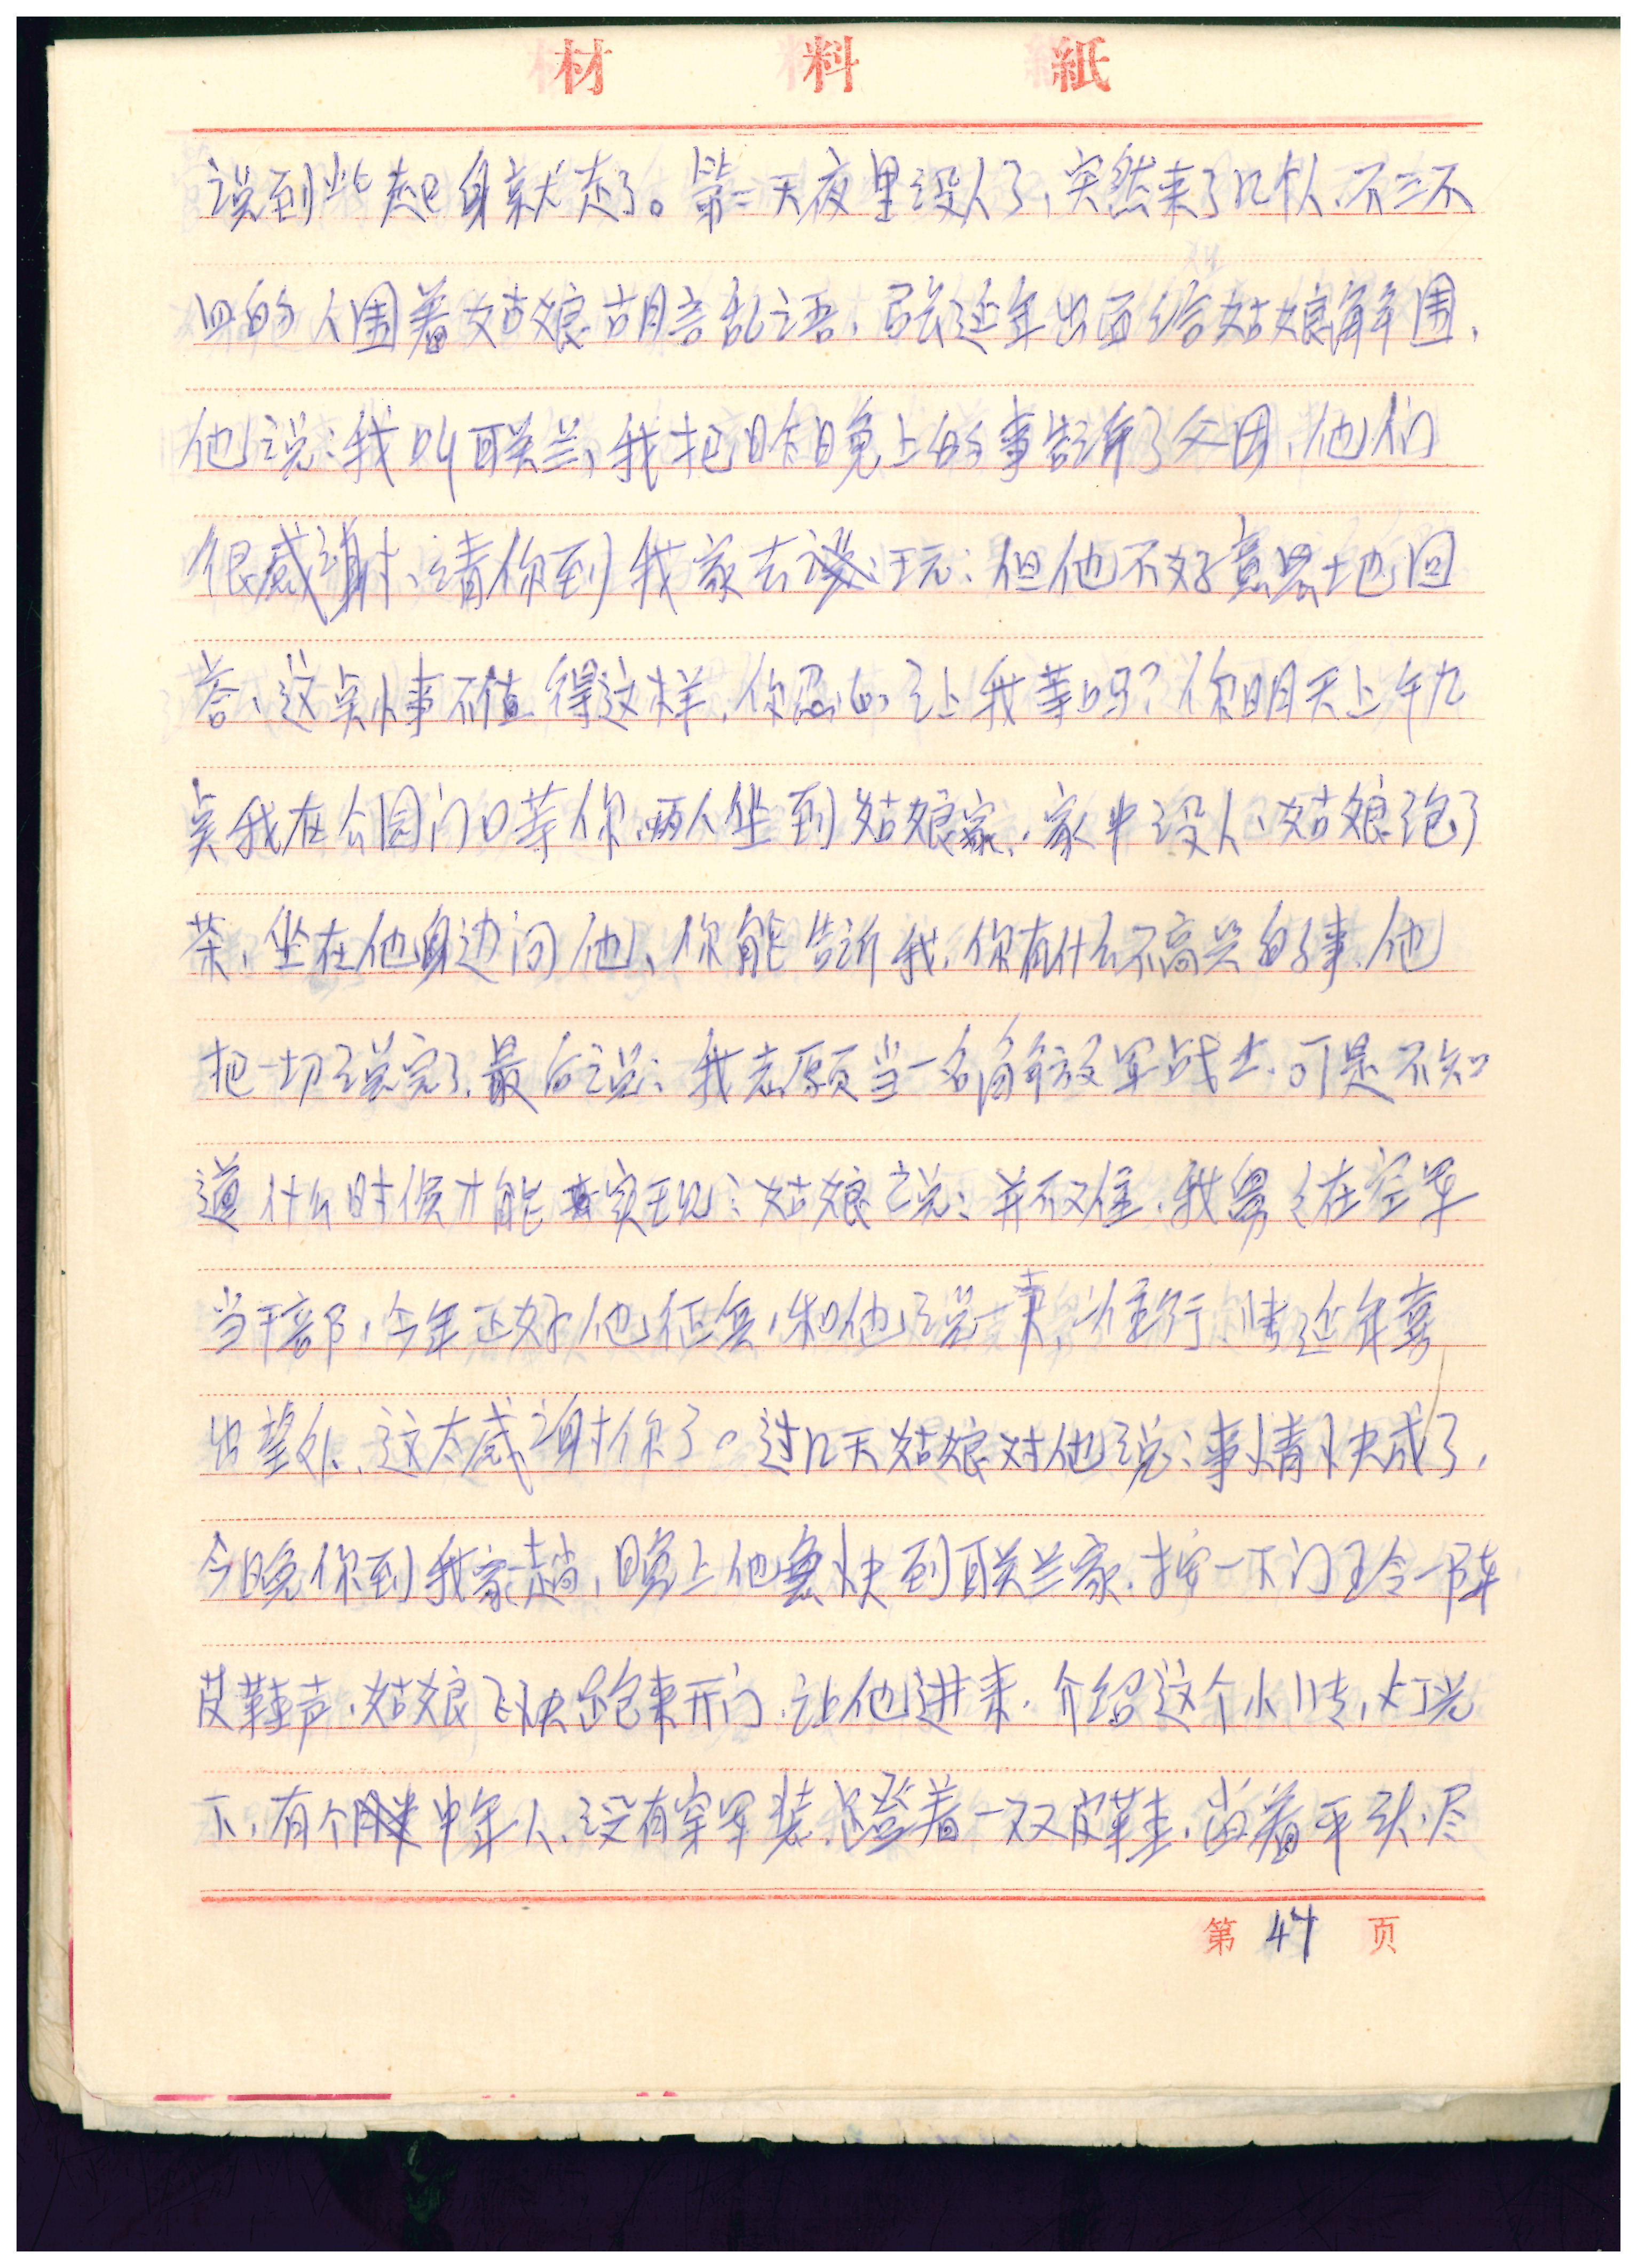 材料紙
说到此起身就走了。第二天夜里没人了,突然来了几个人,不三不
四的人围着姑娘胡言乱语,张延年出面给姑娘解围,
他说:我叫联兰,我把昨日晚上的事告诉了父母,他们
很感谢、请你到我家去玩:但他不好意思地回
答、这点小事不值得这样,你忍心让我等吗?你明天上午九
点我在公园门口等你,两人坐到姑娘家,家中没人、姑娘泡了
茶,坐在他身边问他、你能告诉我,你有什么不高兴的事,他
把一切说完了,最后说:我志愿当一名解放军战士,可是不知
道什么时候才能实现:姑娘说:并不难,我舅舅在空军
当干部,今年正好他征兵,和他说一声,准行,张延年喜
出望外、这太感谢你了。过几天姑娘对他说:事情快成了,
今晚你到我家趟,晚上他急快到联兰家,按一下门玲一阵
皮鞋声,姑娘飞快跑来开门,让他进来,介绍这个小传,灯光
下,有个中年人、没有穿军装,蹬着一双皮鞋,留着平头,尽
第 47 页